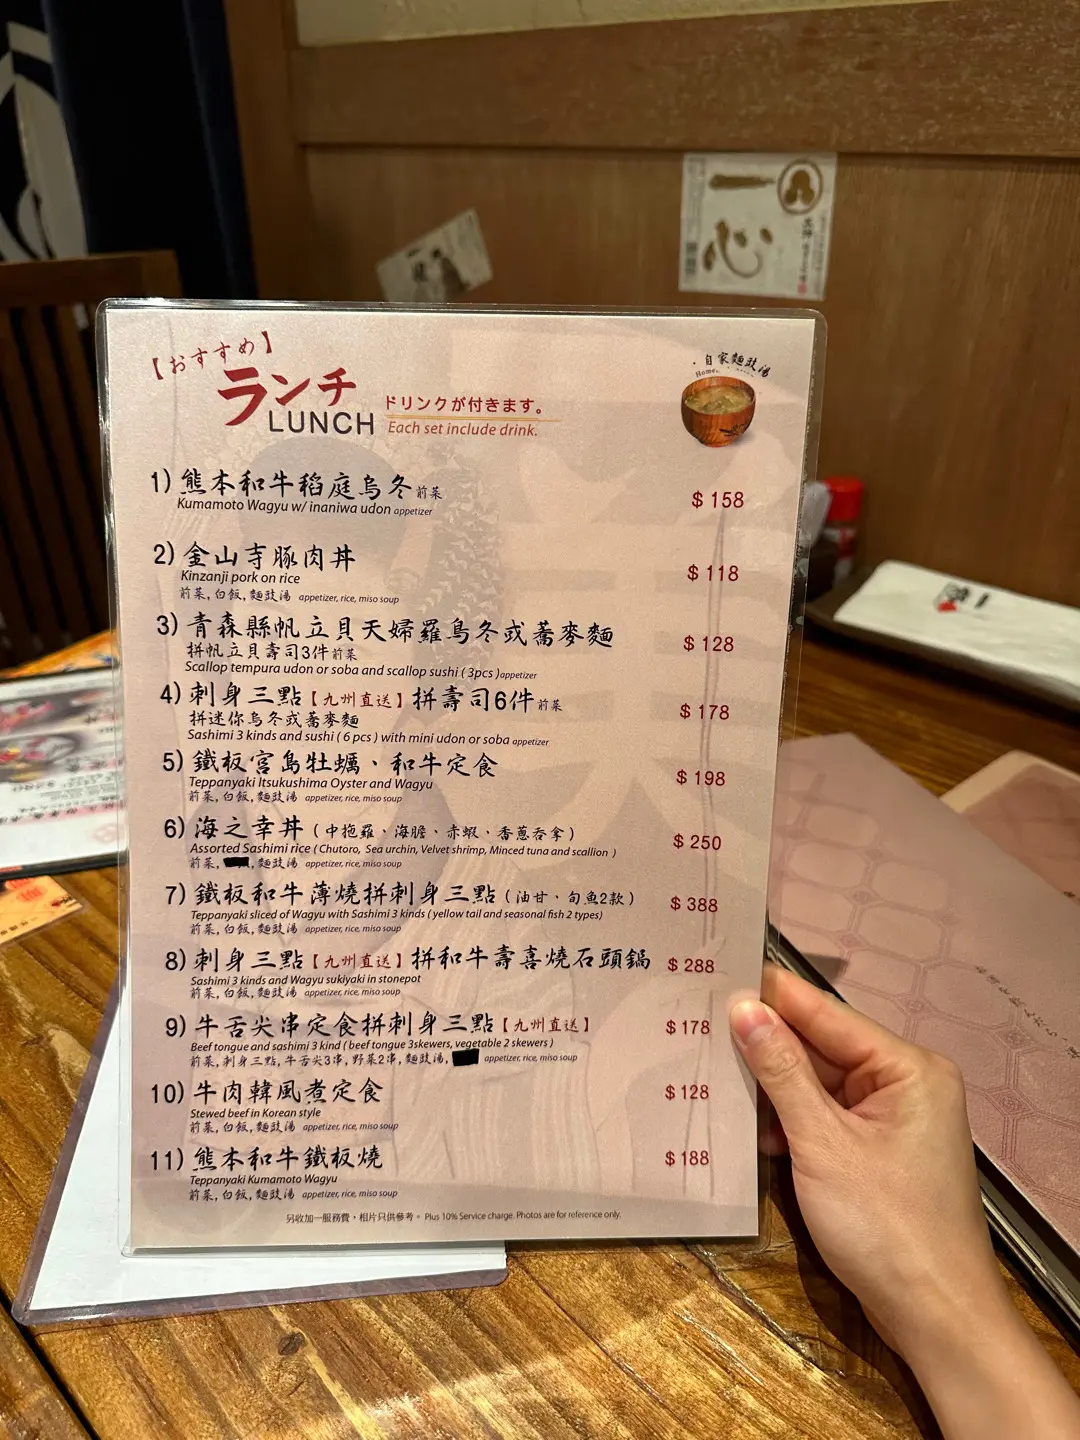 【おすすめ】
ランチ
LUNCH
ドリンクが付きます。
Each set include drink.
自家麵豉湯
1) 熊本和牛稻庭烏冬 前菜
$ 158
Kumamoto Wagyu w/ inaniwa udon appetizer
2) 金山寺豚肉丼
$ 118
Kinzanji pork on rice
前菜,白飯,麵豉湯 appetizer, rice, miso soup
3) 青森縣帆立貝天婦羅烏冬或蕎麥麵
$ 128
拼帆立貝壽司3件 前菜
Scallop tempura udon or soba and scallop sushi ( 3pcs ) appetizer
4) 刺身三點【九州直送】拼壽司6件 前菜
$ 178
拼迷你烏冬或蕎麥麵
Sashimi 3 kinds and sushi ( 6 pcs ) with mini udon or soba appetizer
5) 鐵板宮島牡蠣、和牛定食
$ 198
Teppanyaki Itsukushima Oyster and Wagyu
前菜,白飯,麵豉湯 appetizer, rice, miso soup
6) 海之幸丼 (中拖羅、海膽、赤蝦、香蔥吞拿)
$ 250
Assorted Sashimi rice ( Chutoro, Sea urchin, Velvet shrimp, Minced tuna and scallion )
前菜, 麵豉湯 appetizer, rice, miso soup
7) 鐵板和牛薄燒拼刺身三點 (油甘、旬魚2款)
$ 388
Teppanyaki sliced of Wagyu with Sashimi 3 kinds ( yellow tail and seasonal fish 2 types)
前菜,白飯,麵豉湯 appetizer, rice, miso soup
8) 刺身三點【九州直送】拼和牛壽喜燒石頭鍋
$ 288
Sashimi 3 kinds and Wagyu sukiyaki in stonepot
前菜,白飯,麵豉湯 appetizer, rice, miso soup
9) 牛舌尖串定食拼刺身三點【九州直送】
$ 178
Beef tongue and sashimi 3 kind ( beef tongue 3skewers, vegetable 2 skewers )
前菜,刺身三點,牛舌尖3串,野菜2串,麵豉湯, appetizer, rice, miso soup
10) 牛肉韓風煮定食
$ 128
Stewed beef in Korean style
前菜,白飯,麵豉湯 appetizer, rice, miso soup
11) 熊本和牛鐵板燒
$ 188
Teppanyaki Kumamoto Wagyu
前菜,白飯,麵豉湯 appetizer, rice, miso soup
另收加一服務費，相片只供參考。 Plus 10% Service charge. Photos are for reference only.
一心